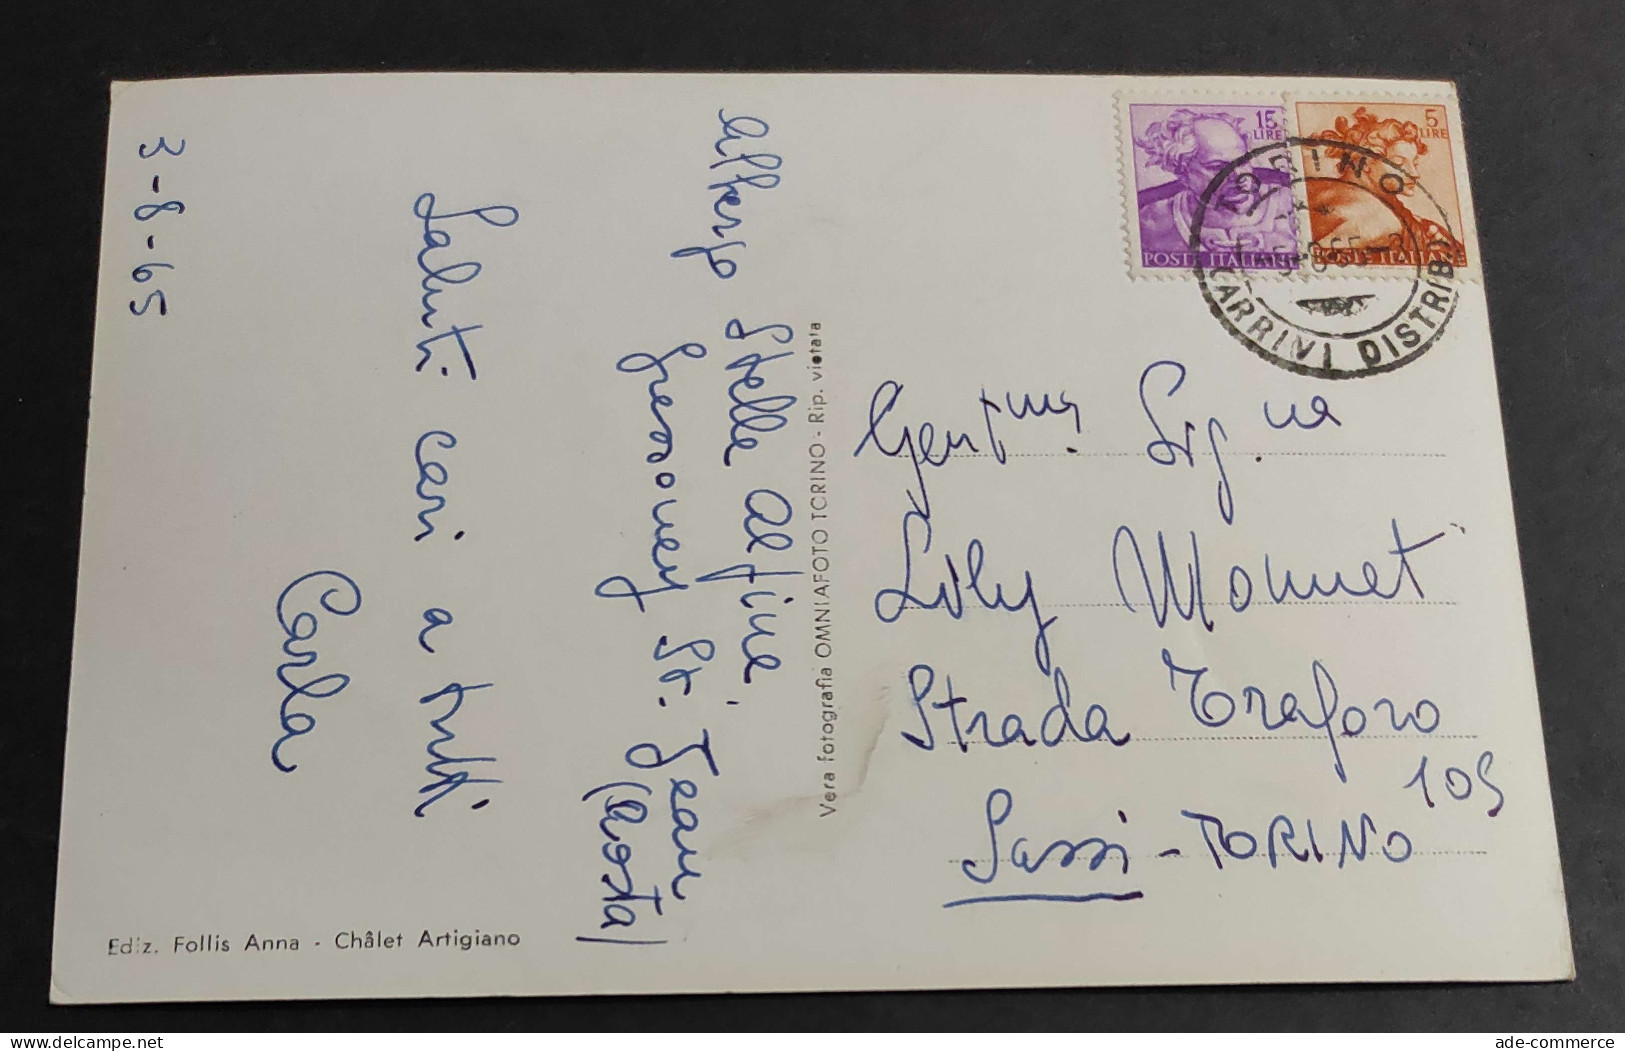 3-8-65
Saluti cari a tutti
Carla
Albergo Stella Alpina
Gressoney St. Jean
(Aosta)
Ediz. Follis Anna - Châlet Artigiano
Vera fotografia OMNIAFOTO TORINO - Rip. vietata
15
LIRE
POSTE ITALIANE
5
LIRE
POSTE ITALIANE
TORINO
ARRIVI DISTRIB.
Gent.ma Sig.na
Lily Monnet
Strada Traforo
109
Sassi - TORINO
delcampe.net
ade-commerce